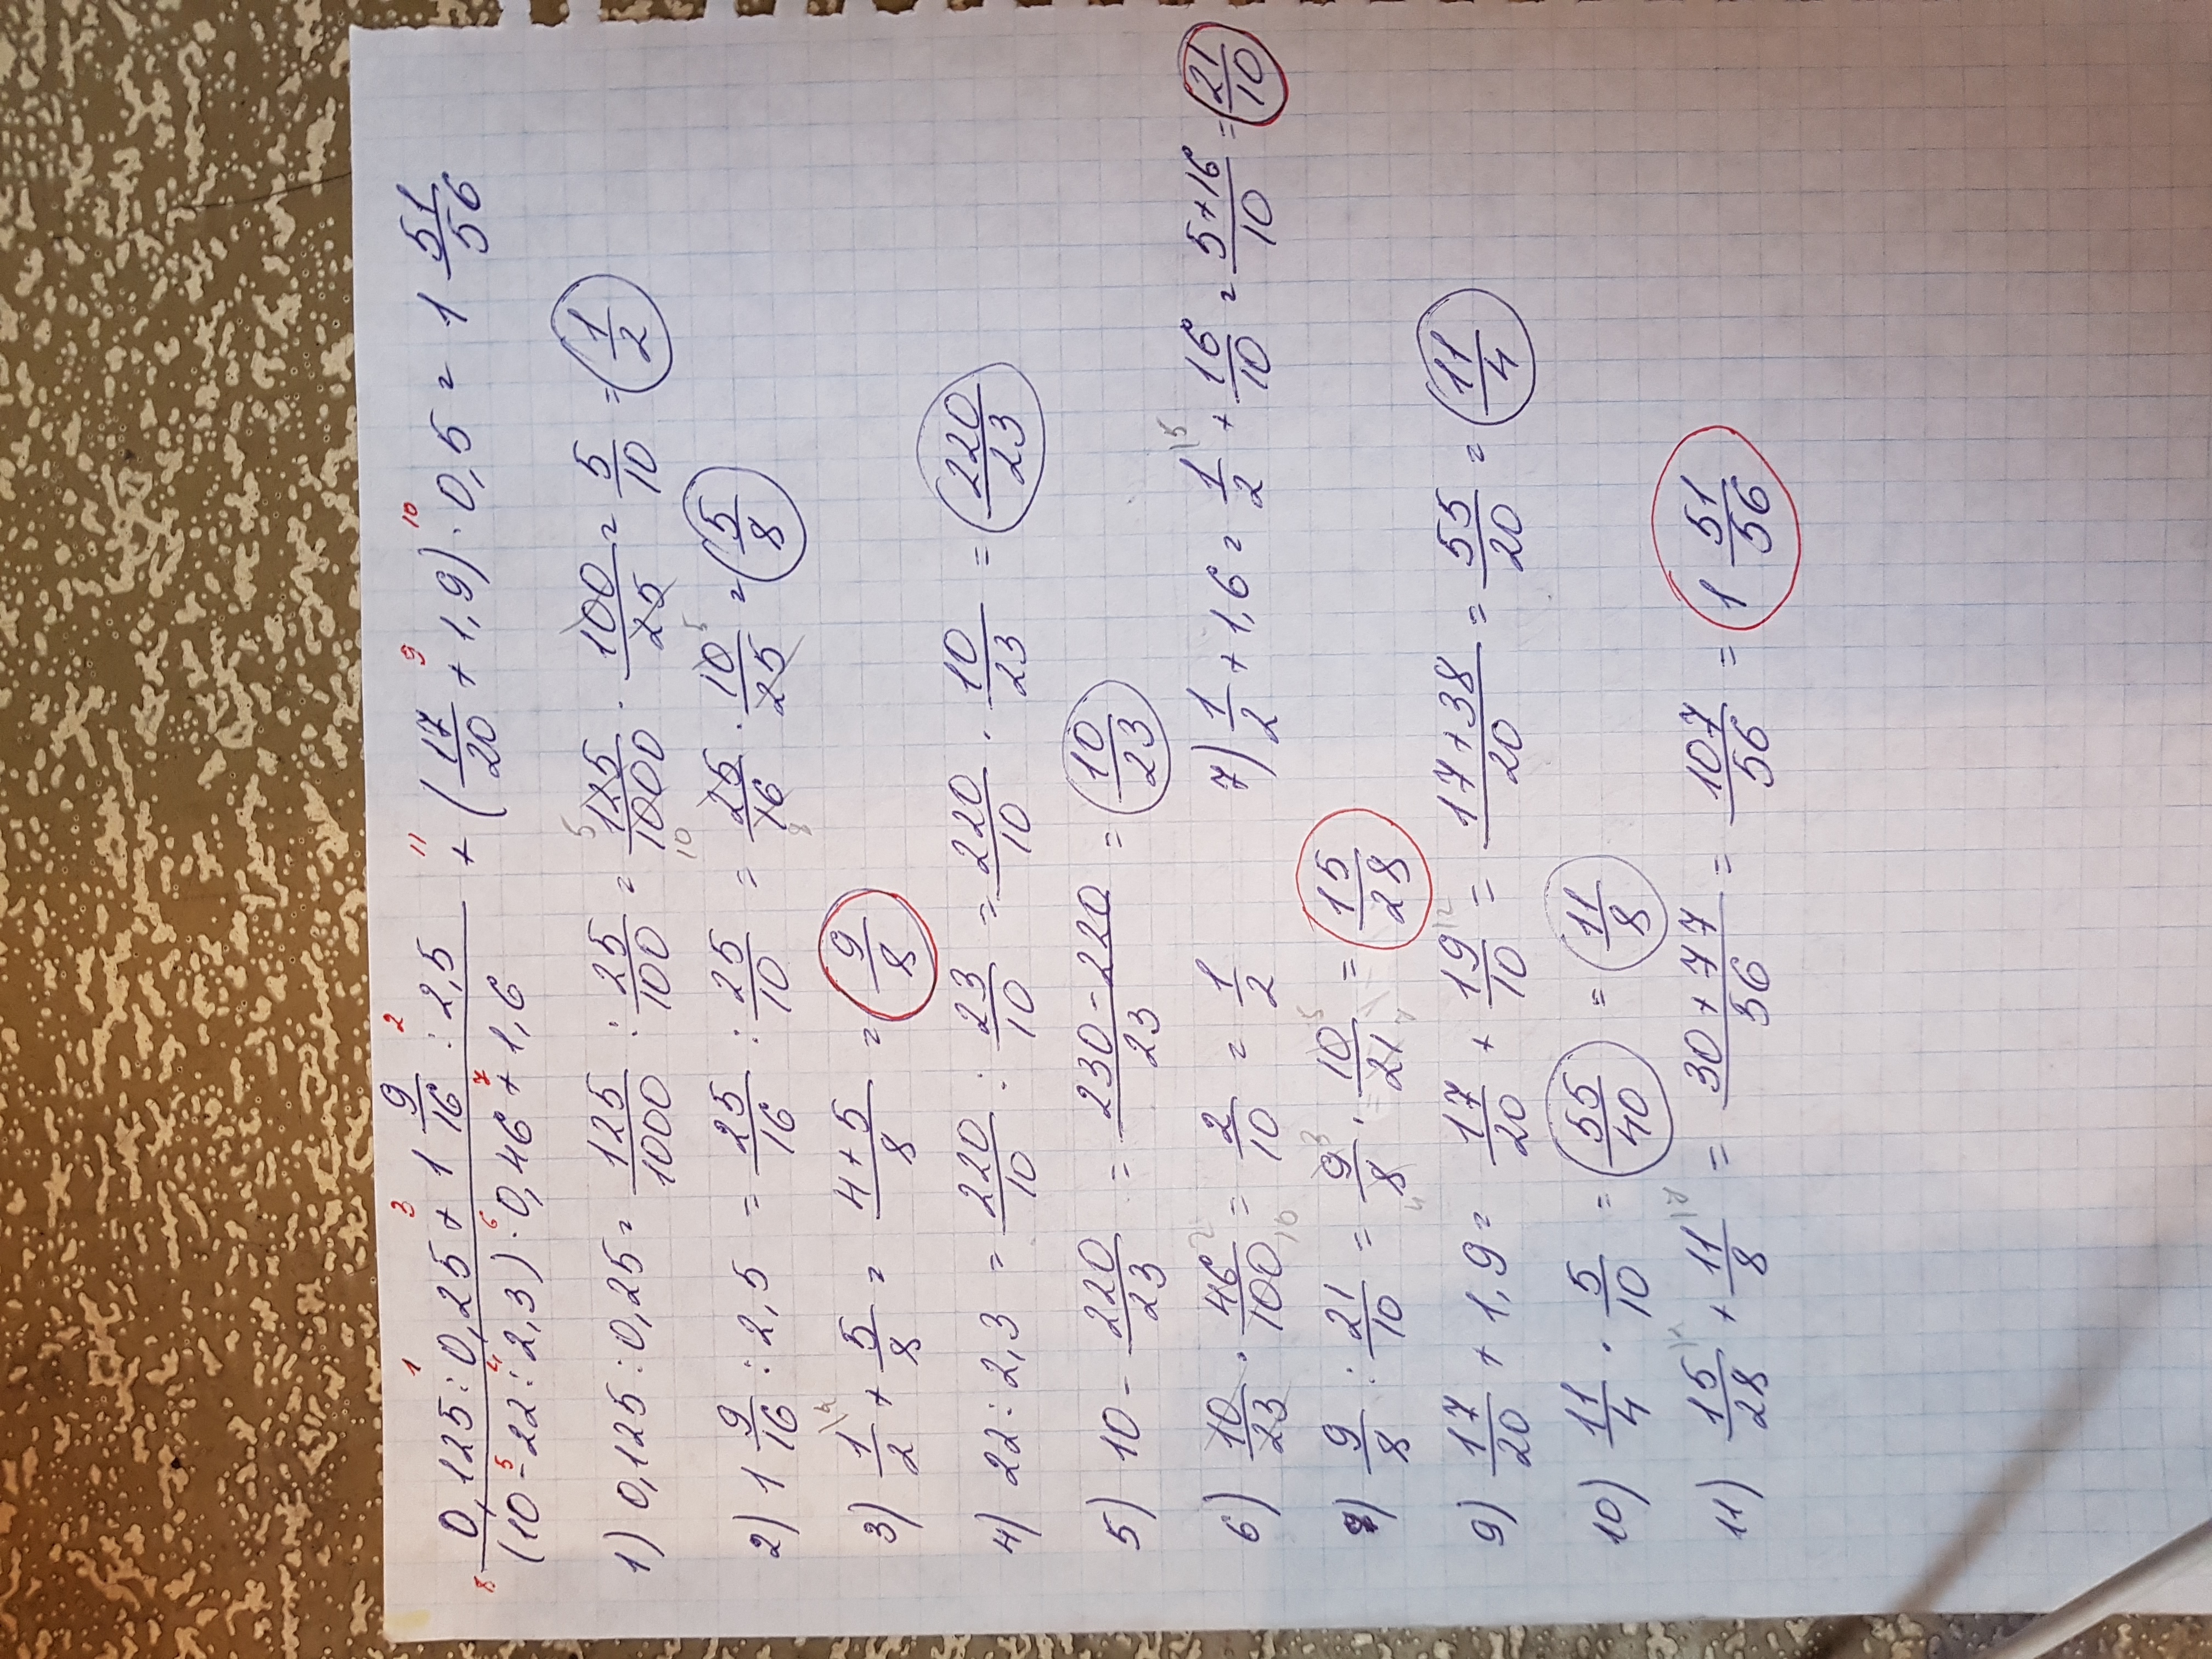 (0,125 : 0,25 + 1 9/16 : 2,5) / ((10 - 22 : 2,3) · 0,46 + 1,6) + (17/20 + 1,9) · 0,5 = 1 51/56
1) 0,125 : 0,25 = 125/1000 : 25/100 = 125/1000 · 100/25 = 5/10 = 1/2
2) 1 9/16 : 2,5 = 25/16 : 25/10 = 25/16 · 10/25 = 5/8
3) 1/2 + 5/8 = (4+5)/8 = 9/8
4) 22 : 2,3 = 220/10 : 23/10 = 220/10 · 10/23 = 220/23
5) 10 - 220/23 = (230-220)/23 = 10/23
6) 10/23 · 46/100 = 2/10 = 1/2 7) 1/2 + 1,6 = 1/2 + 16/10 = (5+16)/10 = 21/10
8) 9/8 : 21/10 = 9/8 · 10/21 = 15/28
9) 17/20 + 1,9 = 17/20 + 19/10 = (17+38)/20 = 55/20 = 11/4
10) 11/4 · 5/10 = 55/40 = 11/8
11) 15/28 + 11/8 = (30+77)/56 = 107/56 = 1 51/56